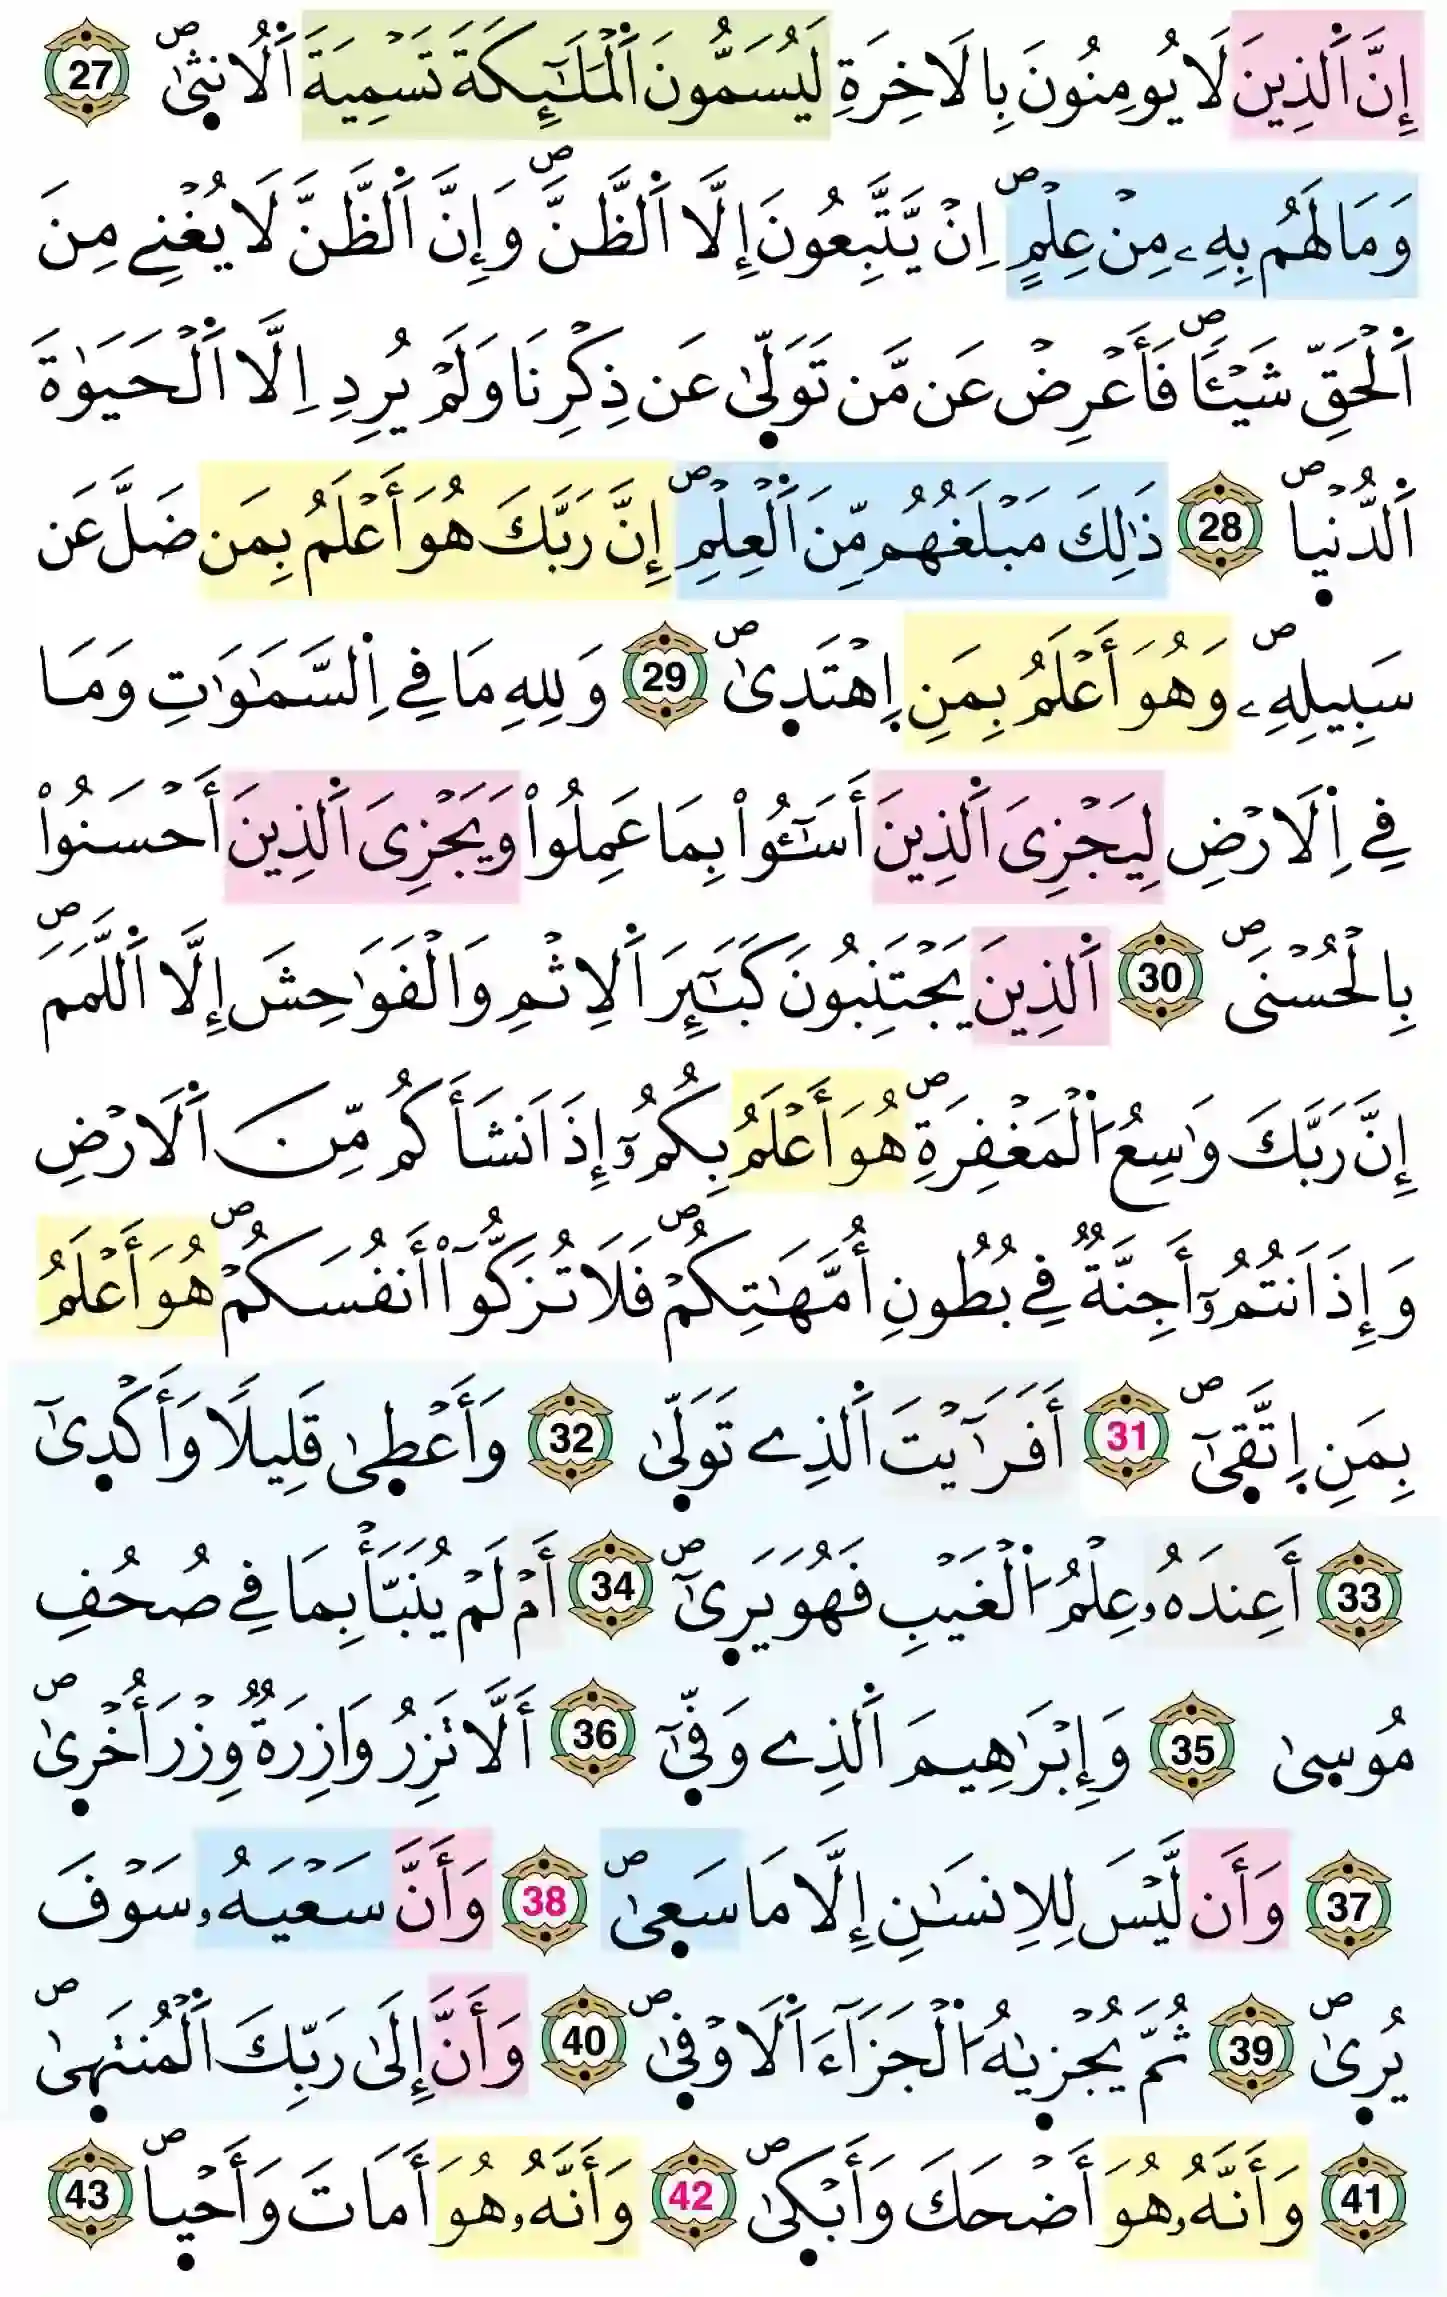 إِنَّ اَ۬لذِينَ لَا يُومِنُونَ بِالَاخِرَةِ لَيُسَمُّونَ اَ۬لْمَلَٰٓئِكَةَ تَسْمِيَةَ اَ۬لُانث۪ىٰۖ 27
وَمَا لَهُم بِهِۦ مِنْ عِلْمٍۖ اِنْ يَّتَّبِعُونَ إِلَّا اَ۬لظَّنَّۖ وَإِنَّ اَ۬لظَّنَّ لَا يُغْنِے مِنَ
اَ۬لْحَقِّ شَيْـٔاٗۖ فَأَعْرِضْ عَن مَّن تَوَلّ۪ىٰ عَن ذِكْرِنَا وَلَمْ يُرِدِ اِلَّا اَ۬لْحَيَوٰةَ
اَ۬لدُّنْي۪اۖ 28 ذَٰلِكَ مَبْلَغُهُم مِّنَ اَ۬لْعِلْمِۖ إِنَّ رَبَّكَ هُوَ أَعْلَمُ بِمَن ضَلَّ عَن
سَبِيلِهِۦۖ وَهُوَ أَعْلَمُ بِمَنِ اِ۪هْتَد۪ىٰۖ 29 وَلِلهِ مَا فِے اِ۬لسَّمَٰوَٰتِ وَمَا
فِے اِ۬لَارْضِ لِيَجْزِيَ اَ۬لذِينَ أَسَٰٓـُٔواْ بِمَا عَمِلُواْ وَيَجْزِيَ اَ۬لذِينَ أَحْسَنُواْ
بِالْحُسْنَىۖ 30 اَ۬لذِينَ يَجْتَنِبُونَ كَبَٰٓئِرَ اَ۬لِاثْمِ وَالْفَوَٰحِشَ إِلَّا اَ۬للَّمَمَۖ
إِنَّ رَبَّكَ وَٰسِعُ اُ۬لْمَغْفِرَةِۖ هُوَ أَعْلَمُ بِكُمُۥٓ إِذَ اَنشَأَكُم مِّنَ اَ۬لَارْضِ
وَإِذَ اَنتُمُۥٓ أَجِنَّةٞ فِے بُطُونِ أُمَّهَٰتِكُمْۖ فَلَا تُزَكُّوٓاْ أَنفُسَكُمْۖ هُوَ أَعْلَمُ
بِمَنِ اِ۪تَّق۪ىٰٓۖ 31 أَفَرَٰٓيْتَ اَ۬لذِے تَوَلّ۪ىٰ 32 وَأَعْط۪ىٰ قَلِيلاٗ وَأَكْد۪ىٰٓ
33 أَعِندَهُۥ عِلْمُ اُ۬لْغَيْبِ فَهُوَ يَر۪ىٰٓۖ 34 أَمْ لَمْ يُنَبَّأْ بِمَا فِے صُحُفِ
مُوس۪ىٰ 35 وَإِبْرَٰهِيمَ اَ۬لذِے وَفّ۪ىٰٓ 36 أَلَّا تَزِرُ وَازِرَةٞ وِزْرَ أُخْر۪ىٰۖ
37 وَأَن لَّيْسَ لِلِانسَٰنِ إِلَّا مَا سَع۪ىٰۖ 38 وَأَنَّ سَعْيَهُۥ سَوْفَ
يُر۪ىٰۖ 39 ثُمَّ يُجْز۪يٰهُ اُ۬لْجَزَآءَ اَ۬لَاوْف۪ىٰۖ 40 وَأَنَّ إِلَىٰ رَبِّكَ اَ۬لْمُنتَه۪ىٰۖ
41 وَأَنَّهُۥ هُوَ أَضْحَكَ وَأَبْك۪ىٰۖ 42 وَأَنَّهُۥ هُوَ أَمَاتَ وَأَحْي۪اۖ 43